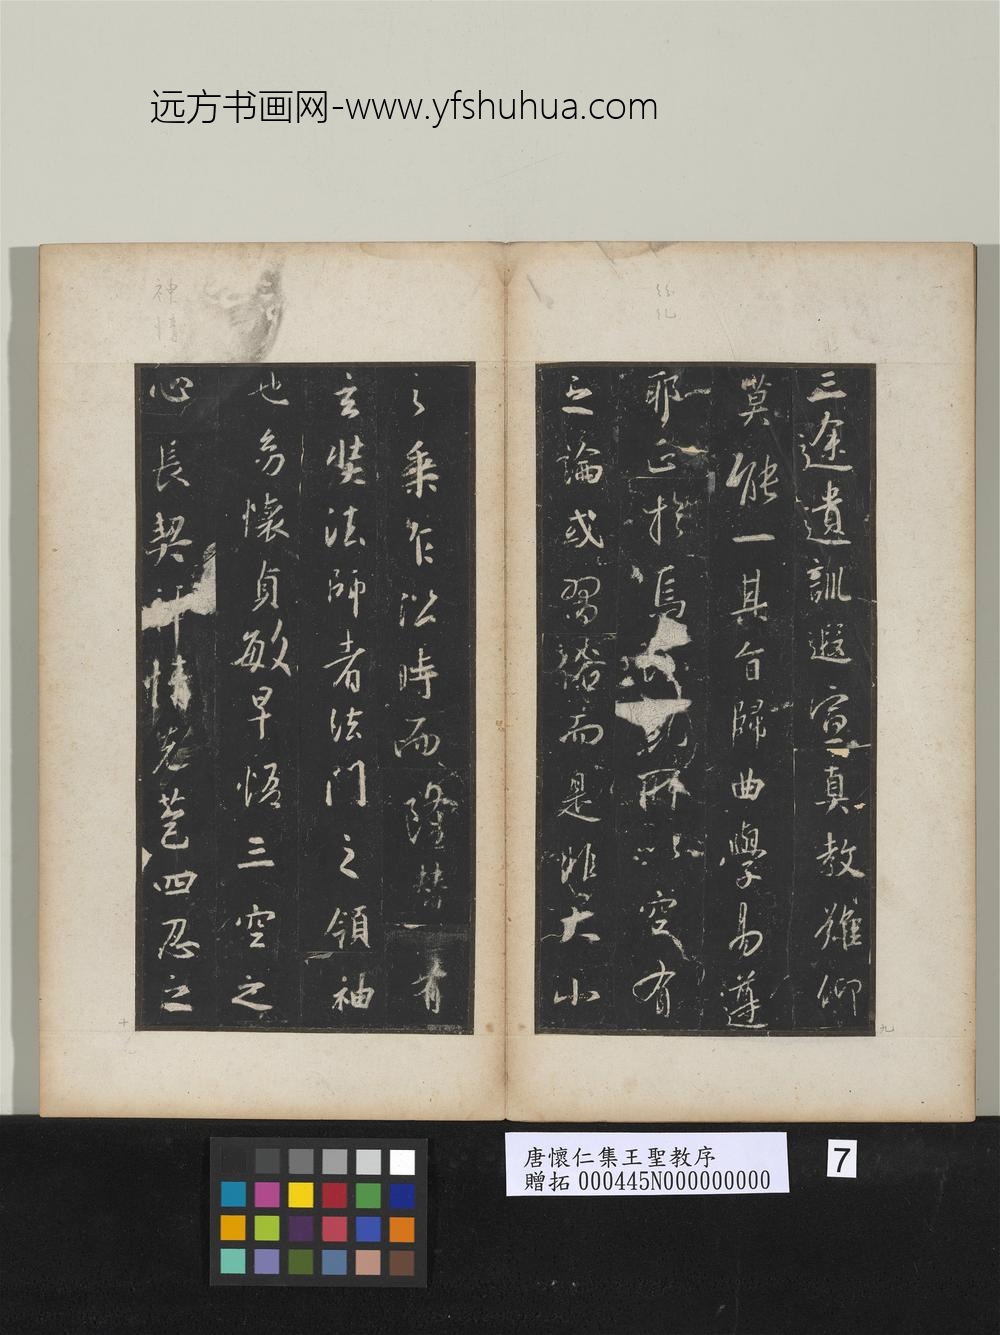 远方书画网-www.yfshuhua.com
三途遺訓遐宣真教難仰
莫能一其旨歸曲學易遵
耶正於焉所以空有
之論或習俗而是非大小
之乘乍沿時而隆替有
玄奘法師者法門之領袖
也幼懷貞敏早悟三空之
心長契神情先苞四忍之
神情
九
十
唐懷仁集王聖教序
贈拓 000445N000000000
7